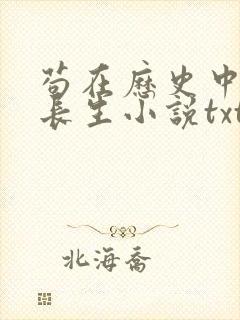 苟在歷史中
長生小說txt
北海喬